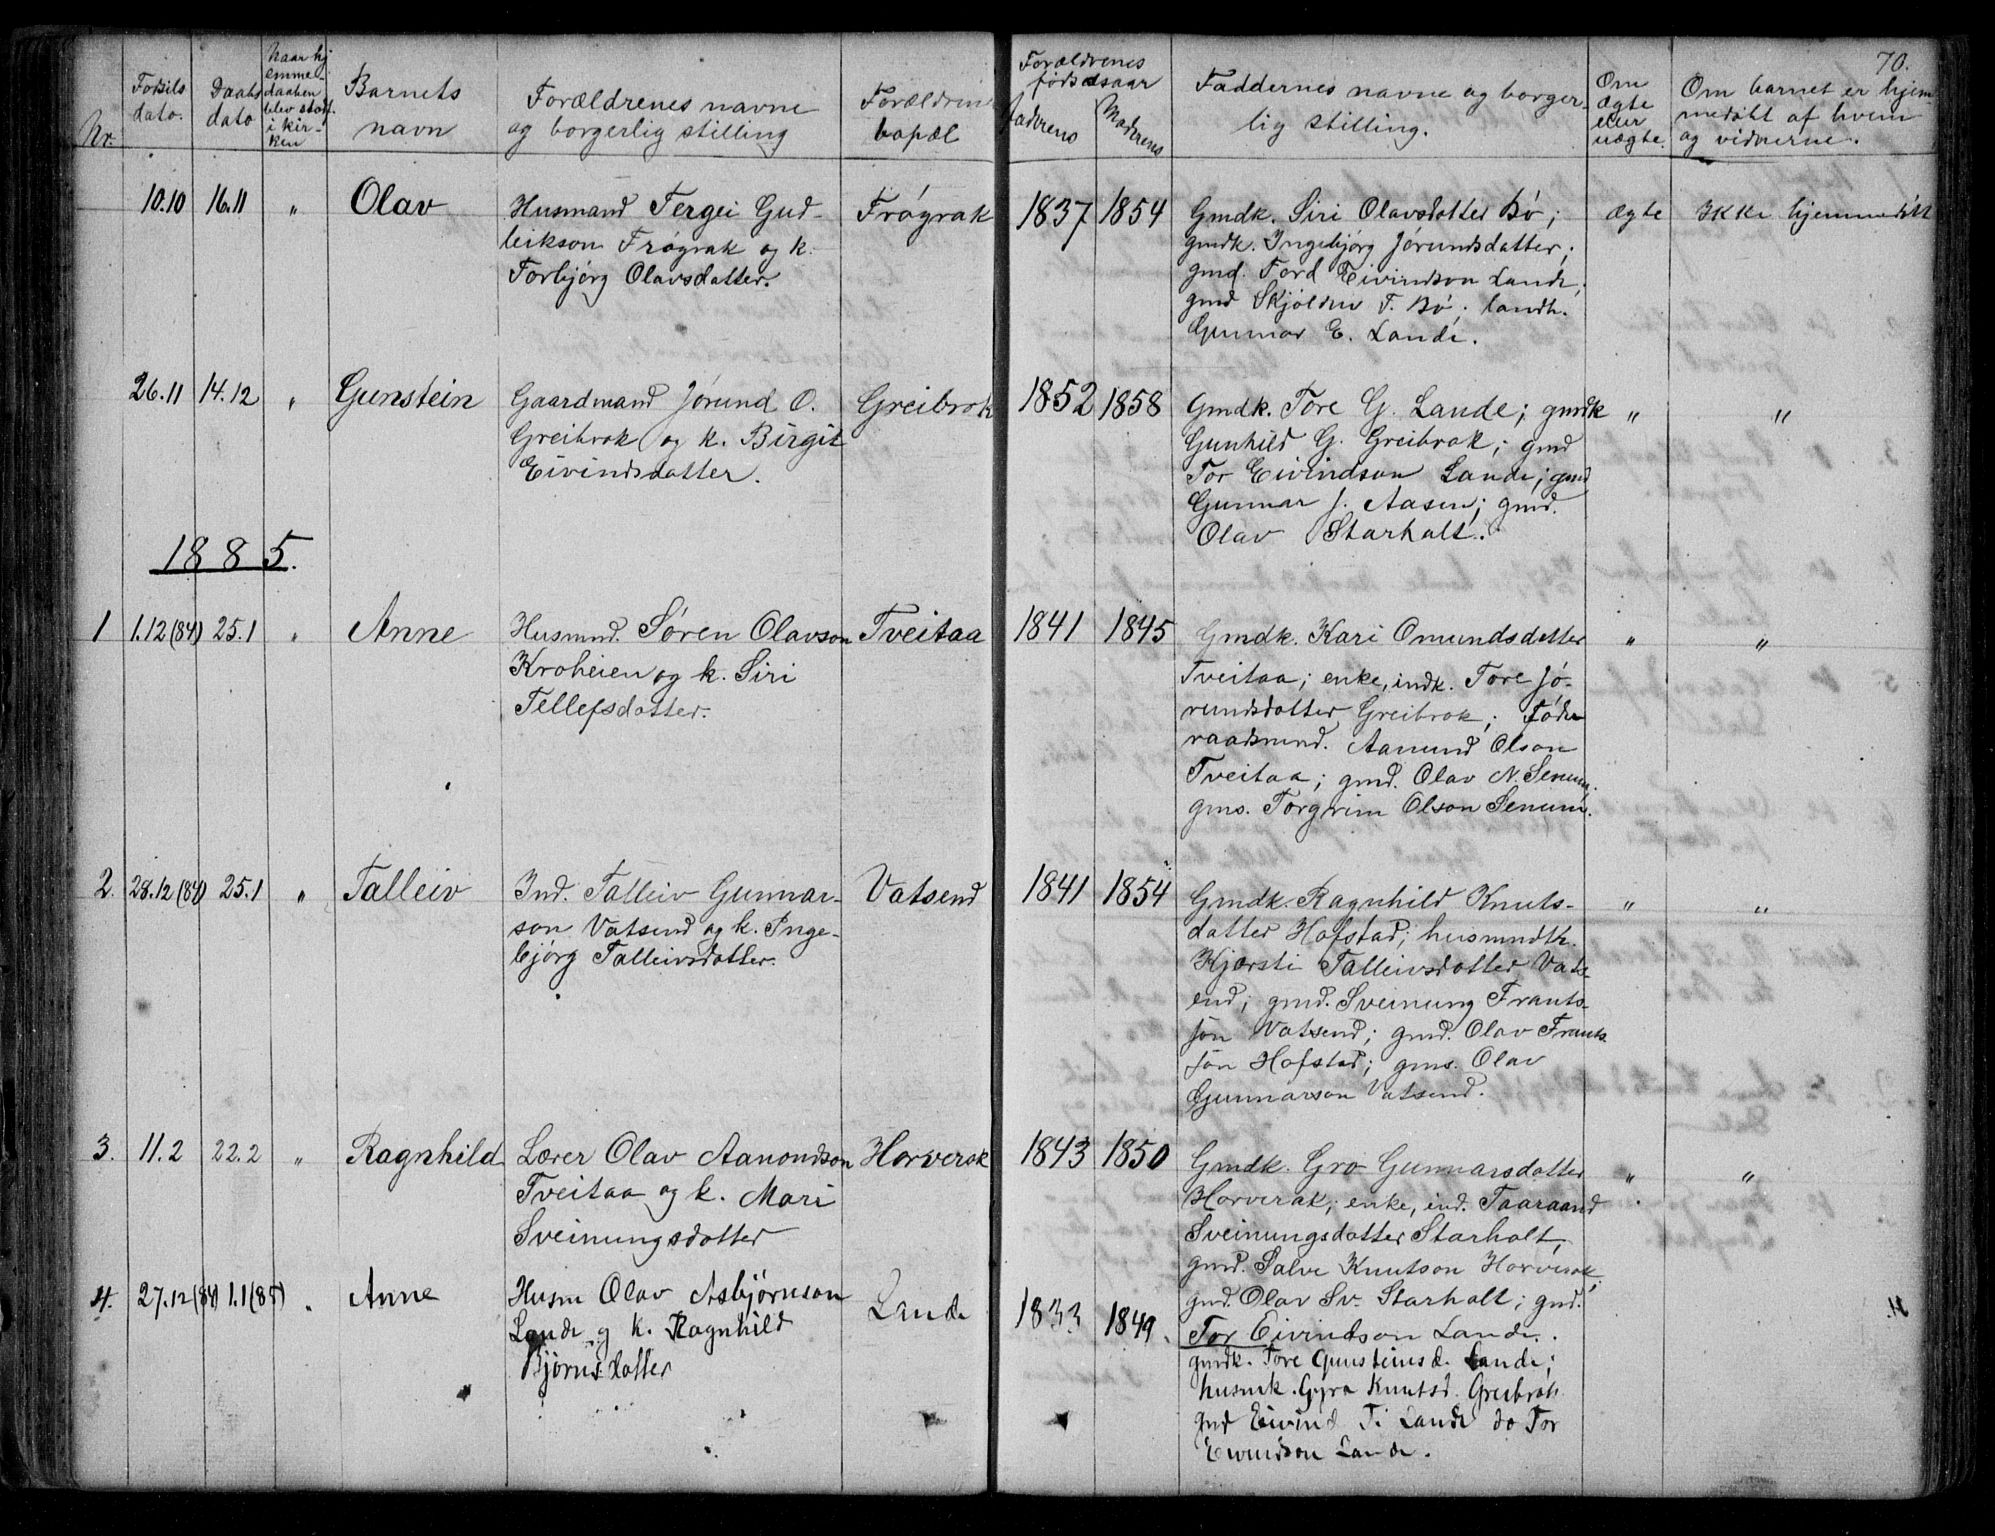 70.
Nr.
Fødsels dato.
Daabs dato
Naar hjemmedaaben blev stadf. i kirken
Barnets navn
Forældrenes navne og borgerlig stilling
Forældrenes bopæl
Forældrenes fødselsaar
Faderens
Moderens
Faddernes navne og borgerlig stilling.
Om ægte eller uægte.
Om barnet er hjemmedøbt af hvem og vidnerne.
10.10 16.11 " Olav
Husmand Tergei Gud-
leikson Frøgrak og k.
Torbjørg Olavsdatter.
Frøgrak
1837 1854
Gmdk. Siri Olavsdatter Bø;
gmdk. Ingebjørg Jørundsdatter;
gmd. Tord Eivindson Lande;
gmd Skjøldu T. Bø; landh.
Gunnar E. Lande.
ægte
Ikke hjemmedøbt
26.11 14.12 " Gunstein
Gaardmand Jørund O.
Greibrok og k. Birgit
Eivindsdatter.
Greibrok
1852 1858
Gmdk. Tore G. Lande; gmdk
Gunhild G. Greibrok; gmd
Tor Eivindson Lande; gmd
Gunnar J. Aasen; gmd.
Olav Starholt.
" "
1885.
1 1.12 (84) 25.1 " Anne
Husmnd. Søren Olavson
Kroheien og k. Siri
Tellefsdatter.
Tveitaa
1841 1845
Gmdk. Kari Omundsdatter
Tveitaa; enke, indk. Tore Jø-
rundsdatter Greibrok; Føde-
raadsmnd. Aamund Olson
Tveitaa; gmd. Olav N. Senum.
gms. Torgrim Olson Senum.
" "
2. 28.12 (84) 25.1 " Talleiv
Ind. Talleiv Gunnar-
son Vatsend og k. Inge-
bjørg Talleivsdatter.
Vatsend
1841 1854
Gmdk. Ragnhild Knuts-
datter Hofstad; husmndk.
Kjersti Talleivsdatter Vats-
end; gmd. Sveinung Frants-
søn Vatsend; gmd. Olav Frants-
søn Hofstad; gms. Olav
Gunnarson Vatsend.
" "
3. 11.2 22.2 " Ragnhild
Lærer Olav Aamondson
Tveitaa og k. Mari
Sveinungsdatter
Horverak
1843 1850
Gmdk. Gro Gunnarsdatter
Horverak; enke, ind. Taaraand
Sveinungsdatter Starholt,
gmd. Salve Knutson Horverak;
gmd. Olav Sv. Starholt; gmd.
Tor Eivindson Lande.
" "
4. 27.12 (84) 1.1 (85) " Anne
Husm Olav Asbjørnson
Lande og k. Ragnhild
Bjørnsdatter
Lande
1833 1849.
gmdk. Tore Gunsteinsd. Lande;
husmk. Gyro Knutsd. Greibrok
gmd Eivind T. Lande do Tor
Eivindson Lande.